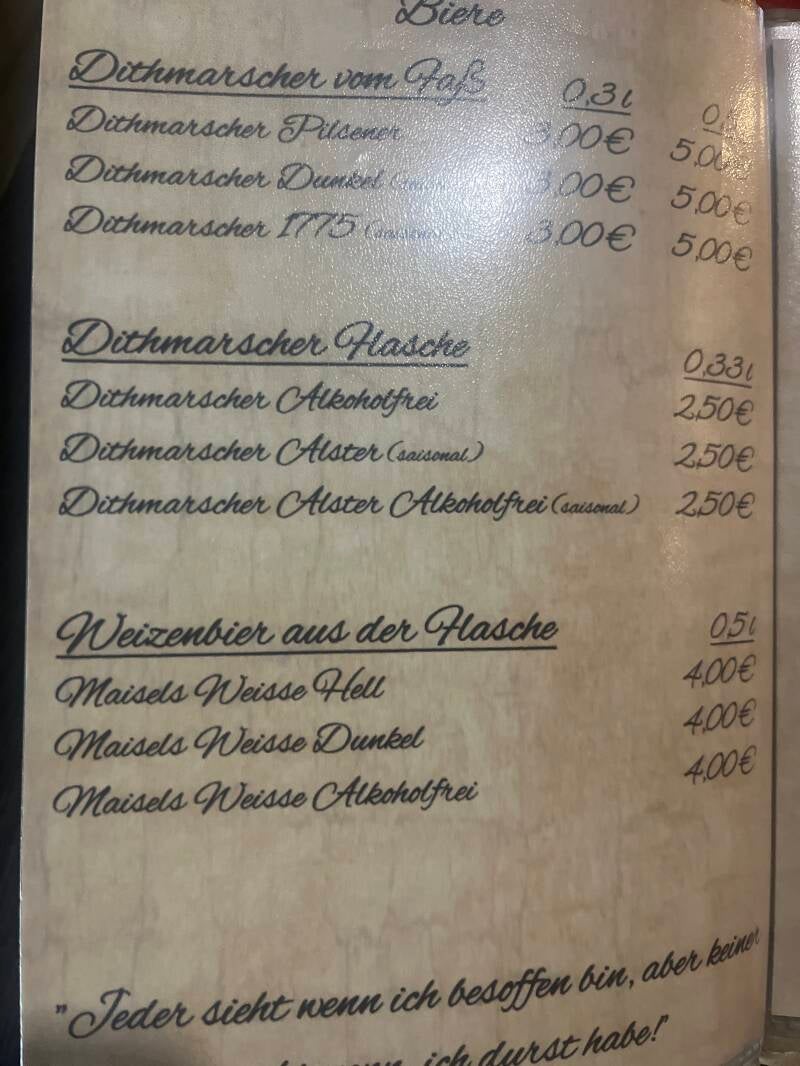 Biere
Dithmarscher vom Faß 0,3l
Dithmarscher Pilsener 3,00€ 5,00
Dithmarscher Dunkel 3,00€ 5,00€
Dithmarscher 1775 (saisonal) 3,00€ 5,00€
Dithmarscher Flasche 0,33l
Dithmarscher Alkoholfrei 2,50€
Dithmarscher Alster (saisonal) 2,50€
Dithmarscher Alster Alkoholfrei (saisonal) 2,50€
Weizenbier aus der Flasche 0,5l
Maisels Weisse Hell 4,00€
Maisels Weisse Dunkel 4,00€
Maisels Weisse Alkoholfrei 4,00€
"Jeder sieht wenn ich besoffen bin, aber keiner
ich durst habe!"